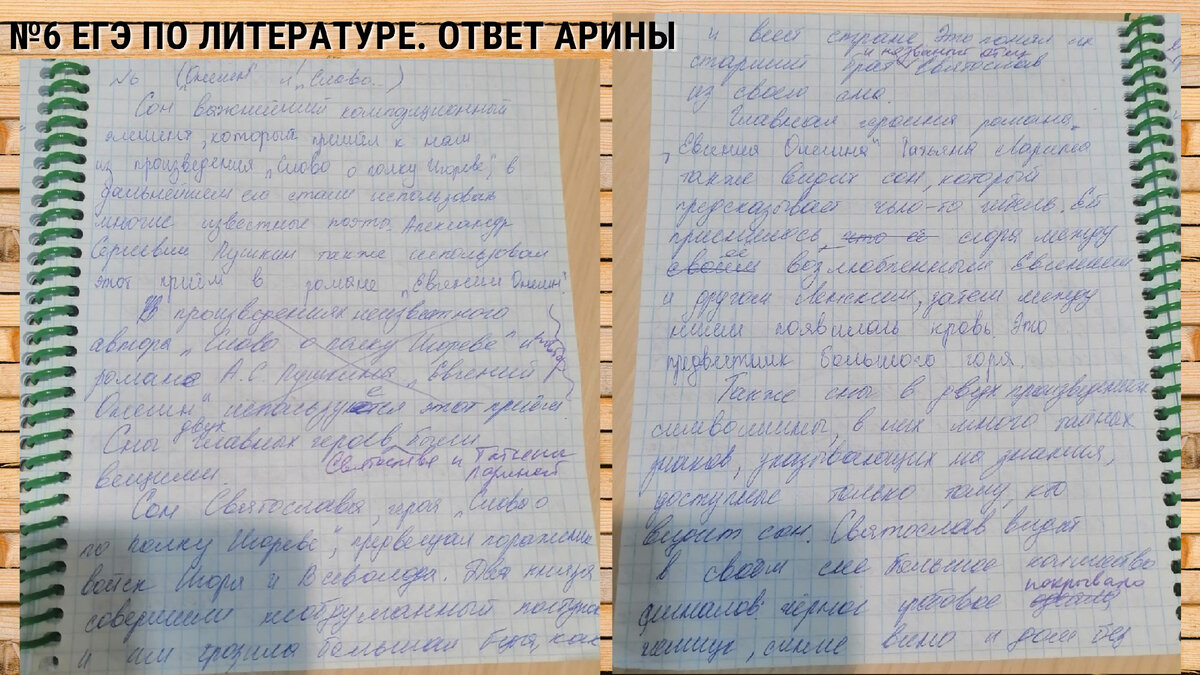 №6 ЕГЭ ПО ЛИТЕРАТУРЕ. ОТВЕТ АРИНЫ
№6 („Онегин" и „Слово...")
Сон важнейший композиционный
элемент, который пришёл к нам
из произведения „Слово о полку Игореве", в
дальнейшем его стали использовать
многие известные поэты. Александр
Сергеевич Пушкин также использовал
этот приём в романе „Евгений Онегин".
В произведениях неизвестного
автора „Слово о полку Игореве" и
романа А.С. Пушкина „Евгений
Онегин" используется этот приём.
Сны двух главных героев были
Святослава и Татьяны
Лариной
вещими.
Сон Святослава, героя „Слова о
по полку Игореве",
поражение
войск Игоря и Всеволода. Два князя
совершили необдуманный поступок
и им грозила большая беда, как
и всей стране. Это понял их
и названый отец
старший брат Святослав
из своего сна.
Главная героиня романа
„Евгения Онегина" Татьяна Ларина
также видит сон, который
предсказывает чью-то гибель. Ей
приснилось, что её ссора между
своей её возлюбленным Евгением
и другом Ленским, затем между
ними появилась кровь. Это
предвестник большого горя.
Также сны в двух произведениях
символичны, в них много тайных
знаков, указывающих на знания,
доступные только тому, кто
видит сон. Святослав видит
в своём сне большое количество
покрывало
символов: чёрное гробовое
жемчуг, синее вино и дом без